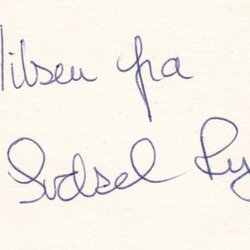 Hilsen fra
Sidsel Ry